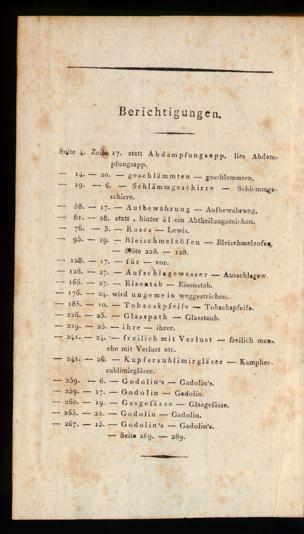 Berichtigungen.
Seite 4. Zeile 17. statt Abdämpfungsapp. lies Abdam-
pfungsapp.
— 14. — 20. — geschlämmten — geschlemmten.
— 19. — 6. — Schlämmgeschirre — Schlemmge-
schirre.
— 58. — 17. — Aufbewahrung — Aufbewahrung.
— 61. — 28. statt , hinter äl ein Abtheilungszeichen.
— 76. — 3. — Roses — Lewis.
— 95. — 19. — Bleischmelzöfen — Bleischmelzofen.
— Seite 228. — 128.
— 128. — 17. — für — vor.
— 128. — 27. — Aufschlagewasser — Ausschlagew.
— 165. — 27. — Eisenstab — Eisenstab.
— 176. — 24. wird ungemein weggestrichen.
— 185. — 10. — Tobackspfeife — Tobackspfeife.
— 226. — 23. — Glasspath — Glasstaub.
— 229. — 25. — ihre — ihrer.
— 241. — 24. — freilich mit Verlust — freilich man-
che mit Verlust etc.
— 241. — 26. — Kupfersublimirgläser — Kampher-
sublimirgläser.
— 259. — 6. — Godolin's — Gadolin's.
— 259. — 17. — Godolin — Gadolin.
— 260. — 19. — Gasgefässe — Glasgefässe.
— 265. — 22. — Godolin — Gadolin.
— 267. — 15. — Godolin's — Gadolin's.
— Seite 269. — 289.